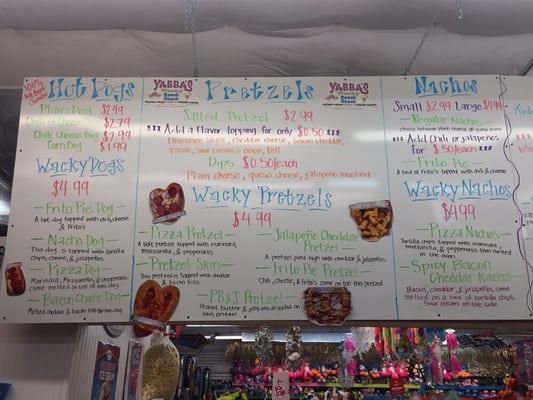 100%
Hot Dogs
Plain Dog $2.49
Chili Cheese Dog $2.79
Chili Cheese Dog $2.99
Corn Dog $1.99
Wacky Dogs
$4.99
Frito Pie Dog
A hot dog topped with chili, cheese
& Frito's
Nacho Dog
This dog is topped with tortilla
chips, cheese, & jalapeños
Pizza Dog
Marinara, Mozzarella, & pepperonis
come melted on top of this dog
Bacon Cheese Dog
Melted cheddar & bacon bits top this dog
YABBA'S
Snack Shack
Pretzels
YABBA'S
Snack Shack
Salted Pretzel $2.99
*** Add a Flavor topping for only $0.50 ***
Cinnamon sugar, cheddar cheese, bacon cheddar,
ranch, sour cream & onion, Dill
Dips $0.50/each
Plain cheese, queso cheese, jalapeño mustard
Wacky Pretzels
$4.99
Pizza Pretzel
A soft pretzel topped with marinara,
mozzarella, & pepperonis
Pretzel Skin
This pretzel is topped with cheddar
& bacon bits
PB&J Pretzel
Peanut butter & jelly are drizzled on
this pretzel
Jalapeño Cheddar
Pretzel
A pretzel piled high with cheddar & jalapeños
Frito Pie Pretzel
Chili, cheese, & frito's come on top this pretzel
Nachos
Small $2.99 Large $4.99
Regular Nachos
*** Add Chili or jalapeños
for $.50/each ***
Frito Pie
A bed of Frito's topped with chili & cheese
Wacky Nachos
$4.99
Pizza Nachos
Tortilla chips topped with marinara,
mozzarella, & pepperonis melted
on the oven
Spicy Bacon
Cheddar Nachos
Bacon, cheddar, & jalapeños come
melted on a bed of tortilla chips
Sour cream on the side